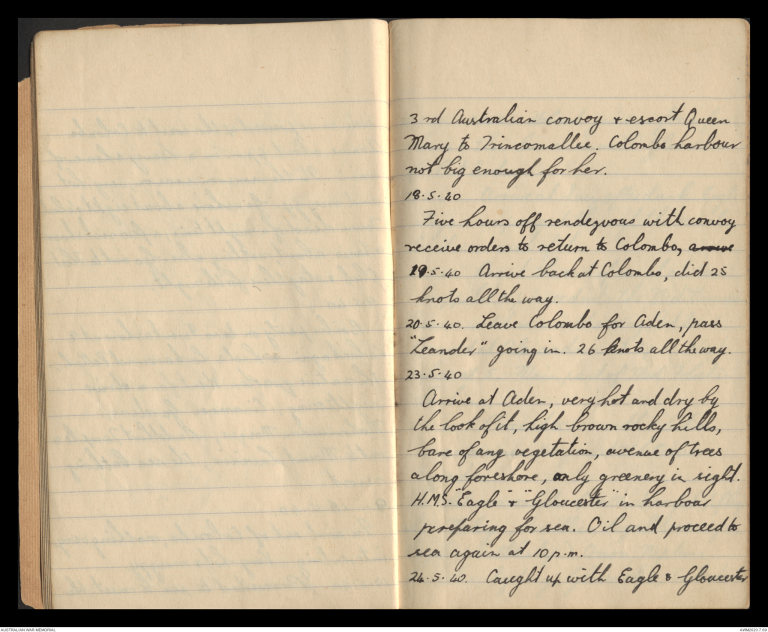 3rd Australian convoy & escort Queen
Mary to Trincomallee. Colombo harbour
not big enough for her.
18·5·40
Five hours off rendezvous with convoy
receive orders to return to Colombo, arrive
19·5·40 Arrive back at Colombo, did 25
knots all the way.
20·5·40. Leave Colombo for Aden, pass
"Leander" going in. 26 knots all the way.
23·5·40
Arrive at Aden, very hot and dry by
the look of it, high brown rocky hills,
bare of any vegetation, avenue of trees
along foreshore, only greenery in sight.
H.M.S. "Eagle" & "Gloucester" in harbour
preparing for sea. Oil and proceed to
sea again at 10 p.m.
24·5·40. Caught up with Eagle & Gloucester
AUSTRALIAN WAR MEMORIAL